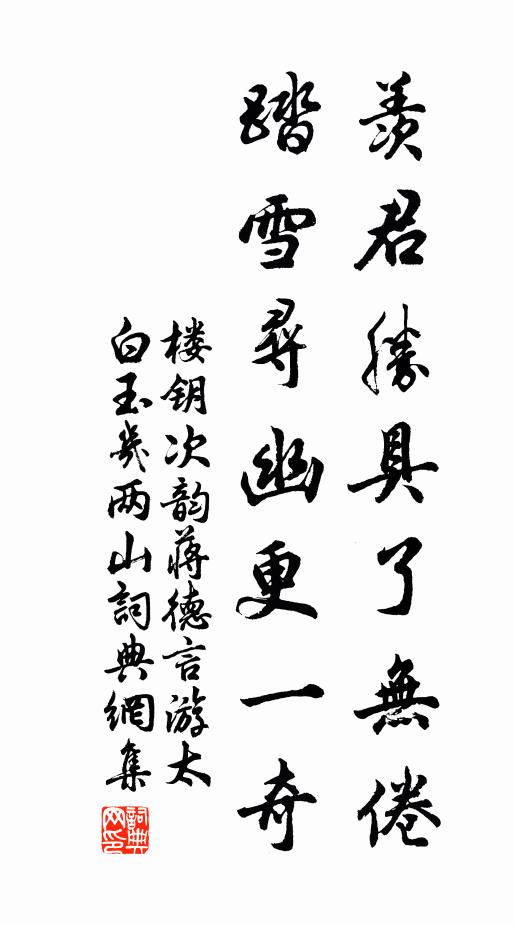 羨君勝具了無倦
踏雪尋幽更一奇
楼钥次韵蒋德言游太
白玉几两山詞典網集
詞典
网印